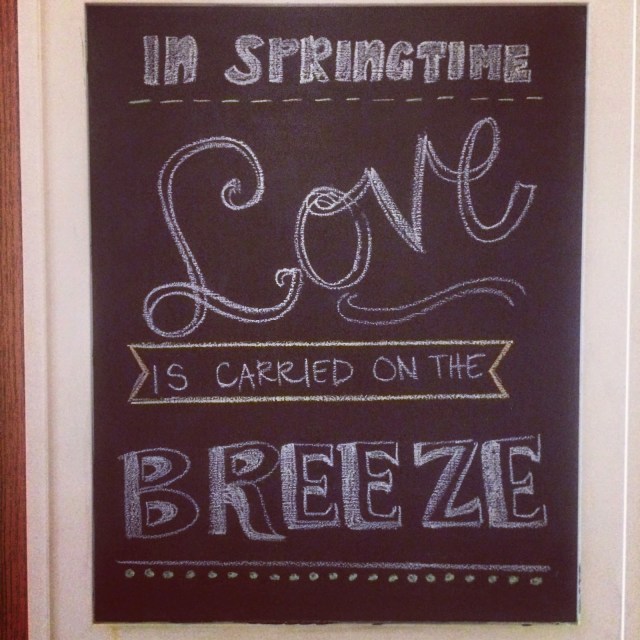 IN SPRINGTIME
Love
IS CARRIED ON THE
BREEZE